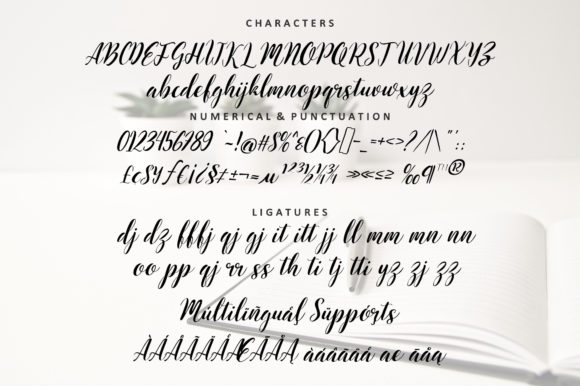 CHARACTERS
ABCDEFGHIJKLMNOPQRSTUVWXYZ
abcdefghijklmnopqrstuvwxyz
NUMERICAL & PUNCTUATION
0123456789 `~!@#$%^&(){}[]-_=+<>?/|\"':;
£¢$¥ƒ€¡¿§±¬=µ¹²³½¼¾ »«≤≥ ‰¶™®
LIGATURES
dj dz fffj aj gj it itt jj ll mm mn nn
oo pp qj rr ss th ti tj tti yz zj zz
Multilingual Supports
ÀÁÂÃÄÅÆĀĂĄ àáâãäå ae āåą